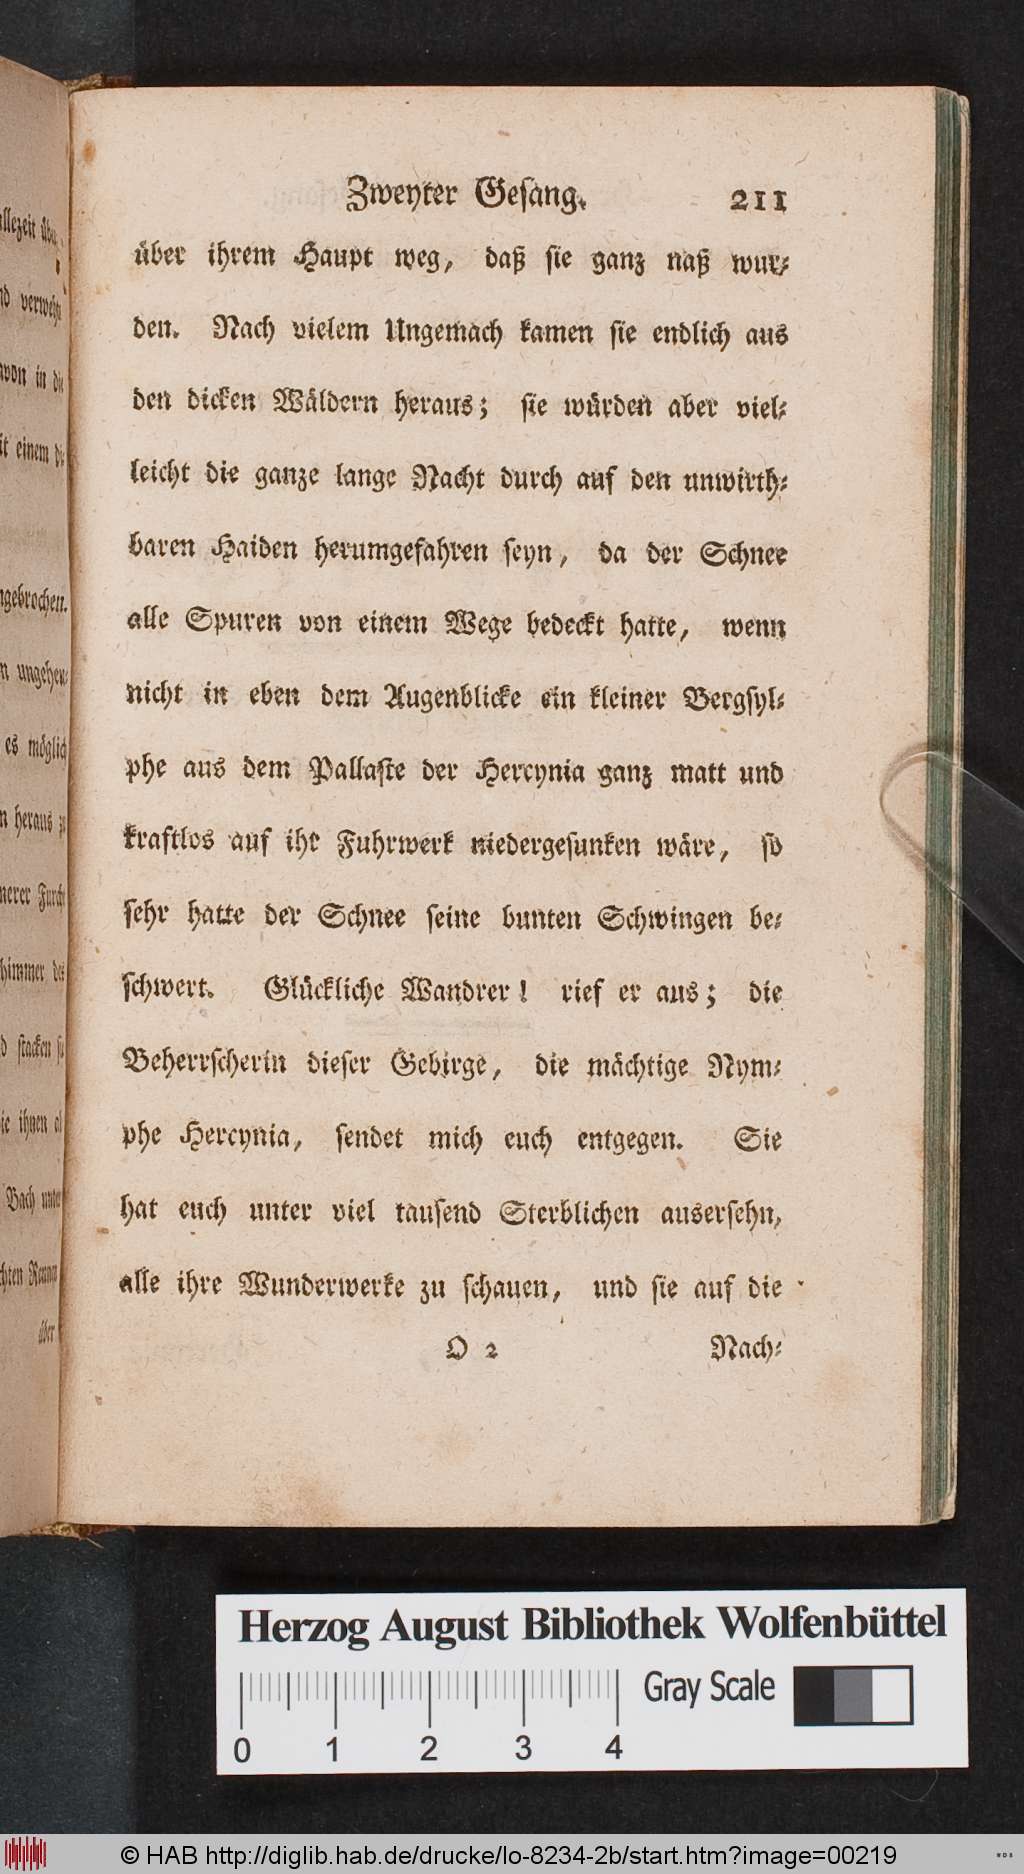 allezeit
nd
in
it einem
ngebrochen.
n ungeheu-
es möglich
n heraus
nerer
himmer des
d stacken
ihnen
Bach
über
Zweyter Gesang. 211
über ihrem Haupt weg, daß sie ganz naß wur-
den. Nach vielem Ungemach kamen sie endlich aus
den dicken Wäldern heraus; sie würden aber viel-
leicht die ganze lange Nacht durch auf den unwirth-
baren Haiden herumgefahren seyn, da der Schnee
alle Spuren von einem Wege bedeckt hatte, wenn
nicht in eben dem Augenblicke ein kleiner Bergsyl-
phe aus dem Pallaste der Hercynia ganz matt und
kraftlos auf ihr Fuhrwerk niedergesunken wäre, so
sehr hatte der Schnee seine bunten Schwingen be-
schwert. Glückliche Wandrer! rief er aus; die
Beherrscherin dieser Gebirge, die mächtige Nym-
phe Hercynia, sendet mich euch entgegen. Sie
hat euch unter viel tausend Sterblichen ausersehn,
alle ihre Wunderwerke zu schauen, und sie auf die
O 2 Nach-
Herzog August Bibliothek Wolfenbüttel
Gray Scale
0 1 2 3 4
© HAB http://diglib.hab.de/drucke/lo-8234-2b/start.htm?image=00219